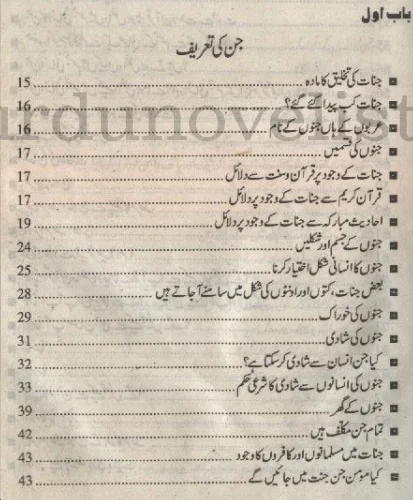 باب اول
جن کی تعریف
جنات کی تخلیق کا مادہ ... 15
جنات کب پیدا کئے گئے؟ ... 16
عربوں کے ہاں جنوں کے نام ... 16
جنوں کی قسمیں ... 17
جنات کے وجود پر قرآن و سنت سے دلائل ... 17
قرآن کریم سے جنات کے وجود پر دلائل ... 17
احادیث مبارکہ سے جنات کے وجود پر دلائل ... 19
جنوں کے جسم اور شکلیں ... 24
جنوں کا انسانی شکل اختیار کرنا ... 25
بعض جنات، کتوں اور اونٹوں کی شکل میں سامنے آجاتے ہیں ... 28
جنوں کی خوراک ... 29
جنوں کی شادی ... 31
کیا جن انسان سے شادی کر سکتا ہے؟ ... 32
جنوں کی انسانوں سے شادی کا شرعی حکم ... 33
جنوں کے گھر ... 39
تمام جن مکلف ہیں ... 42
جنات میں مسلمانوں اور کافروں کا وجود ... 43
کیا مومن جن جنت میں جائیں گے ... 43
urdunovelist